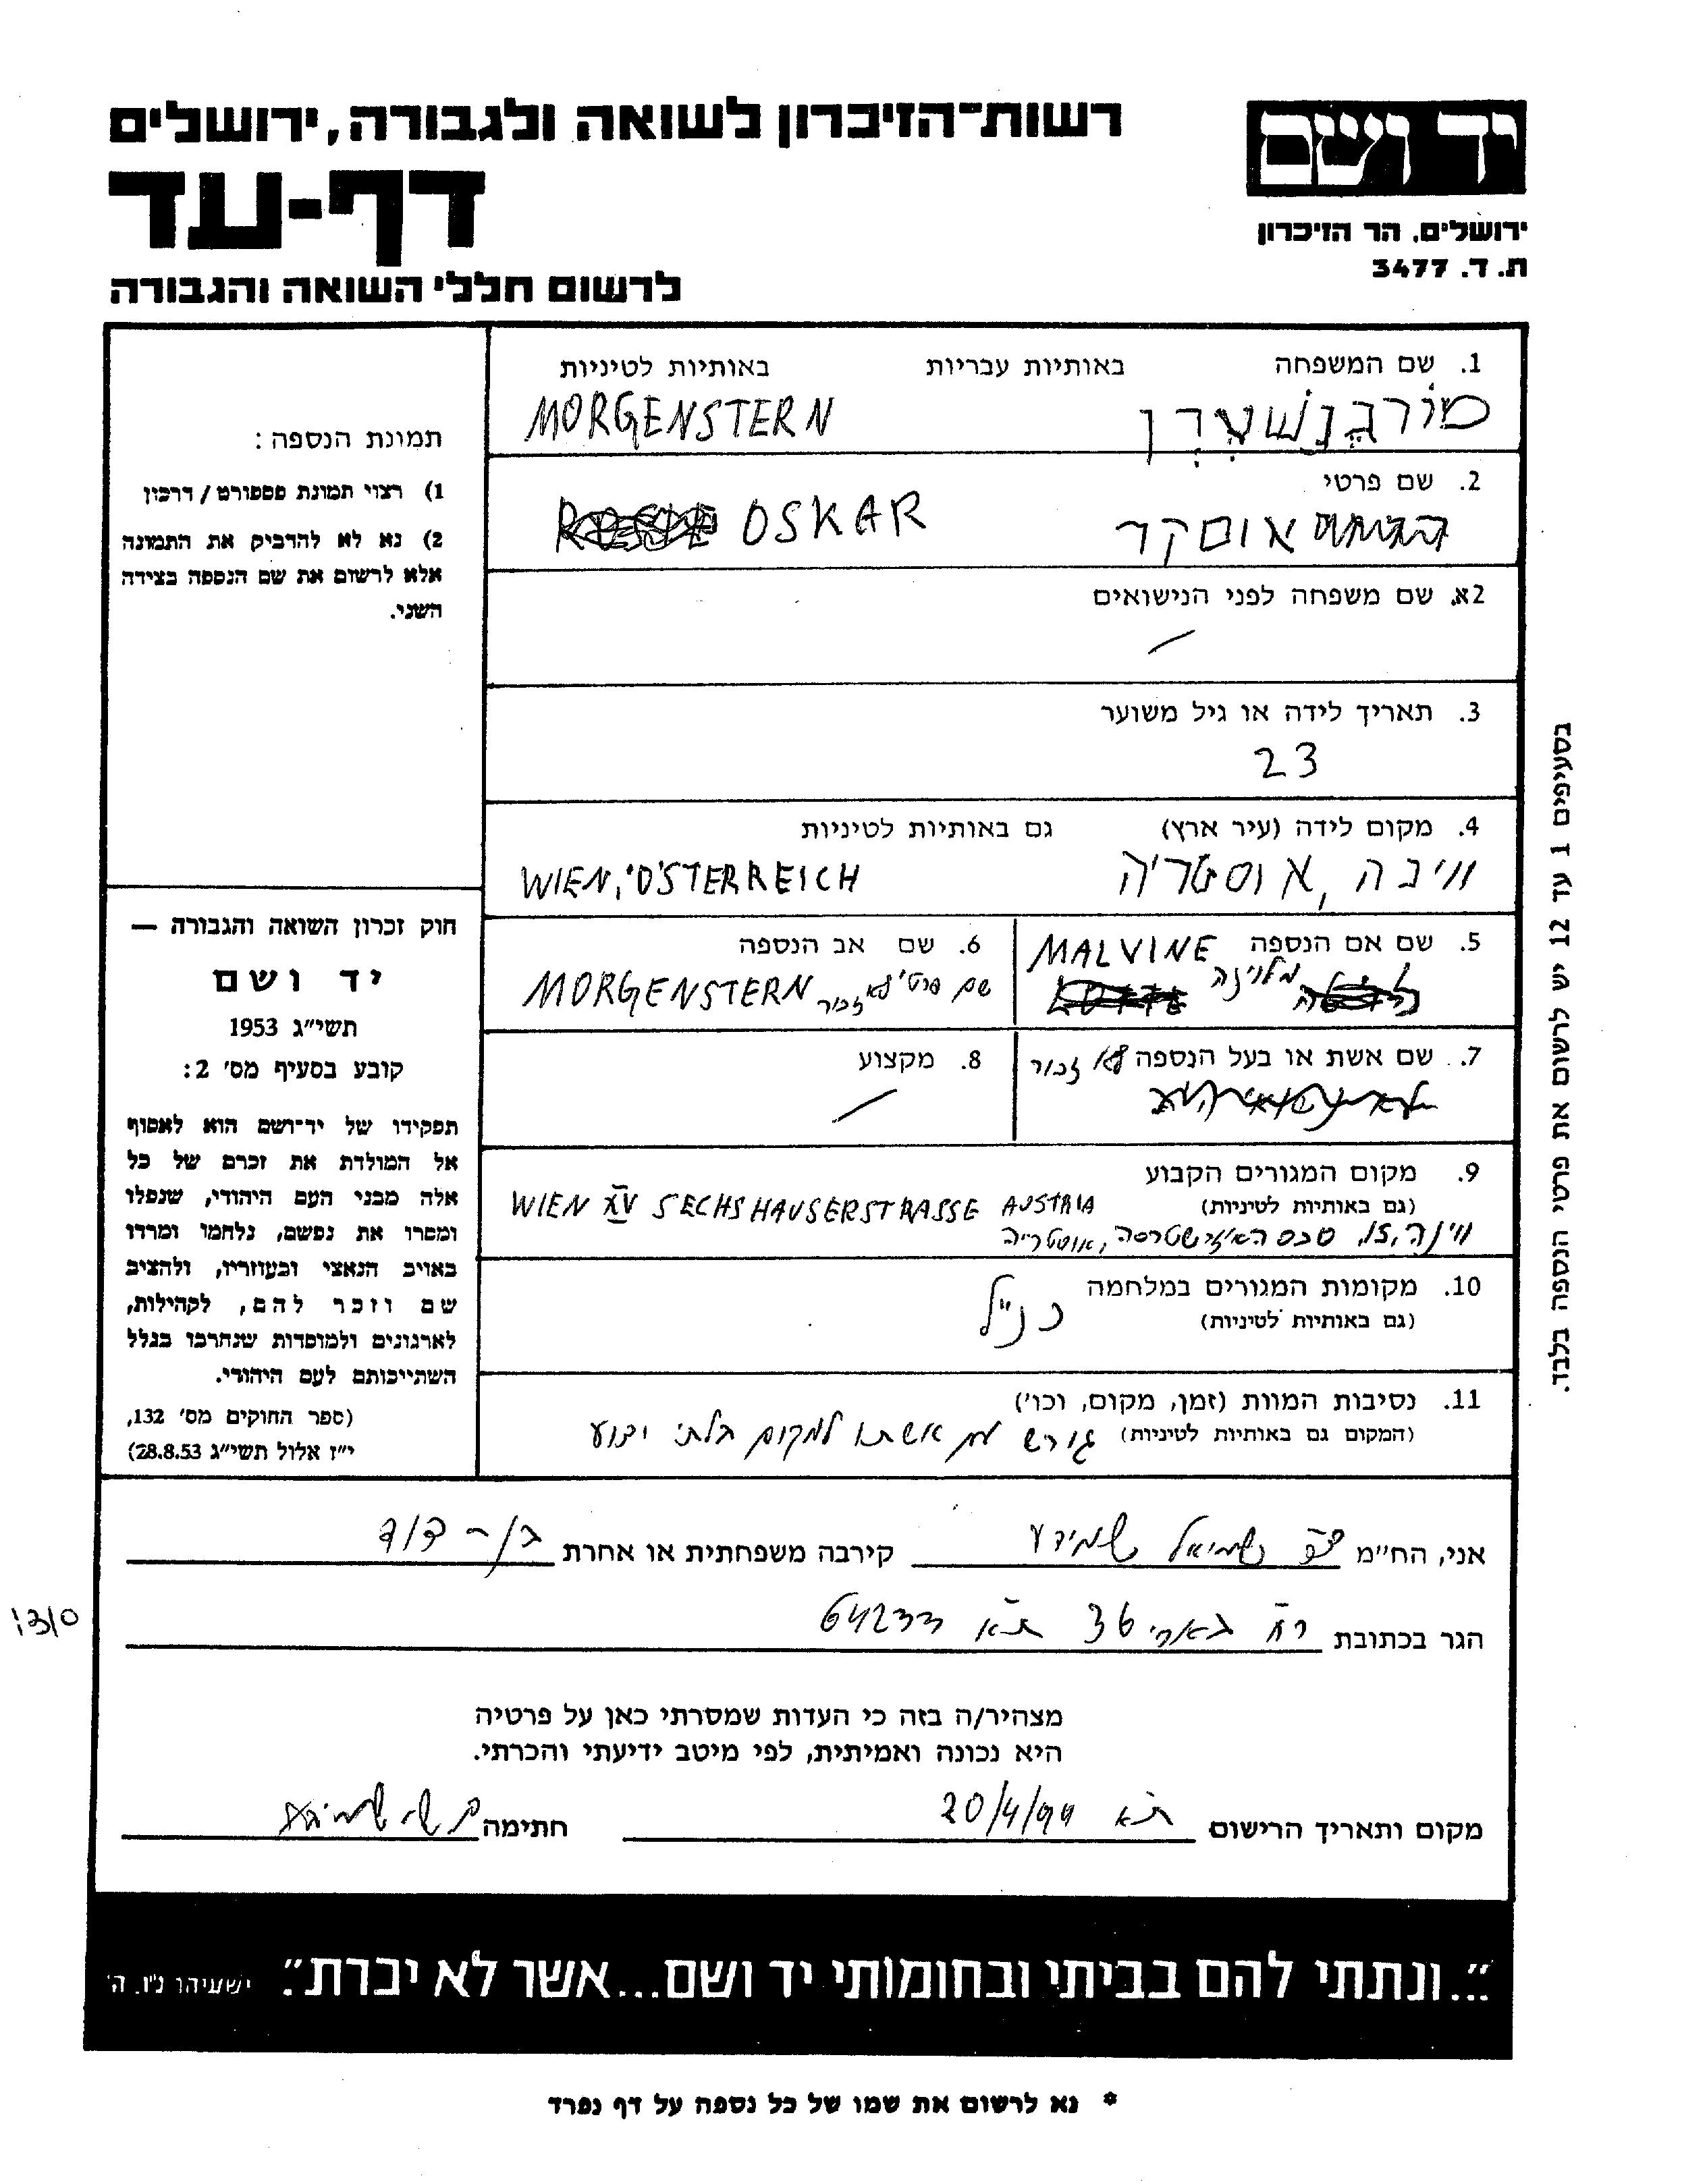 רשות־הזיכרון לשואה ולגבורה, ירושלים
דף-עד
לרשום חללי השואה והגבורה
יד ושם
ירושלים. הר הזיכרון
ת. ד. 3477
1. שם המשפחה באותיות עבריות באותיות לטיניות
מורגנשטרן MORGENSTERN
2. שם פרטי
אוסקר OSKAR
2א. שם משפחה לפני הנישואים
3. תאריך לידה או גיל משוער
23
4. מקום לידה (עיר ארץ) גם באותיות לטיניות
ווינה, אוסטריה WIEN, ÖSTERREICH
5. שם אם הנספה MALVINE
מלוינה
6. שם אב הנספה
שם פרטי לא זכור MORGENSTERN
7. שם אשת או בעל הנספה לא זכור
8. מקצוע
9. מקום המגורים הקבוע
(גם באותיות לטיניות) WIEN XV SECHSHAUSERSTRASSE AUSTRIA
ווינה, 15, סכס האוזרשטרסה, אוסטריה
10. מקומות המגורים במלחמה
(גם באותיות לטיניות) כנ״ל
11. נסיבות המוות (זמן, מקום, וכו׳)
(המקום גם באותיות לטיניות) גורש עם אשתו למקום בלתי ידוע
תמונת הנספה:
1) רצוי תמונת פספורט / דרכון
2) נא לא להדביק את התמונה
אלא לרשום את שם הנספה בצידה
השני.
חוק זכרון השואה והגבורה —
יד ושם
תשי״ג 1953
קובע בסעיף מס׳ 2:
תפקידו של יד־ושם הוא לאסוף
אל המולדת את זכרם של כל
אלה מבני העם היהודי, שנפלו
ומסרו את נפשם, נלחמו ומרדו
באויב הנאצי ובעוזריו, ולהציב
שם וזכר להם, לקהילות,
לארגונים ולמוסדות שנחרבו בגלל
השתייכותם לעם היהודי.
(ספר החוקים מס׳ 132,
י״ז אלול תשי״ג 28.8.53)
בסעיפים 1 עד 12 יש לרשום את פרטי הנספה בלבד.
אני, הח״מ שמידע קירבה משפחתית או אחרת בן-דוד
הגר בכתובת רח 36 ת״א 64233
מצהיר/ה בזה כי העדות שמסרתי כאן על פרטיה
היא נכונה ואמיתית, לפי מיטב ידיעתי והכרתי.
מקום ותאריך הרישום ת״א 20/4/99 חתימה
"...ונתתי להם בביתי ובחומותי יד ושם...אשר לא יכרת". ישעיהו נ״ו. ה׳
* נא לרשום את שמו של כל נספה על דף נפרד